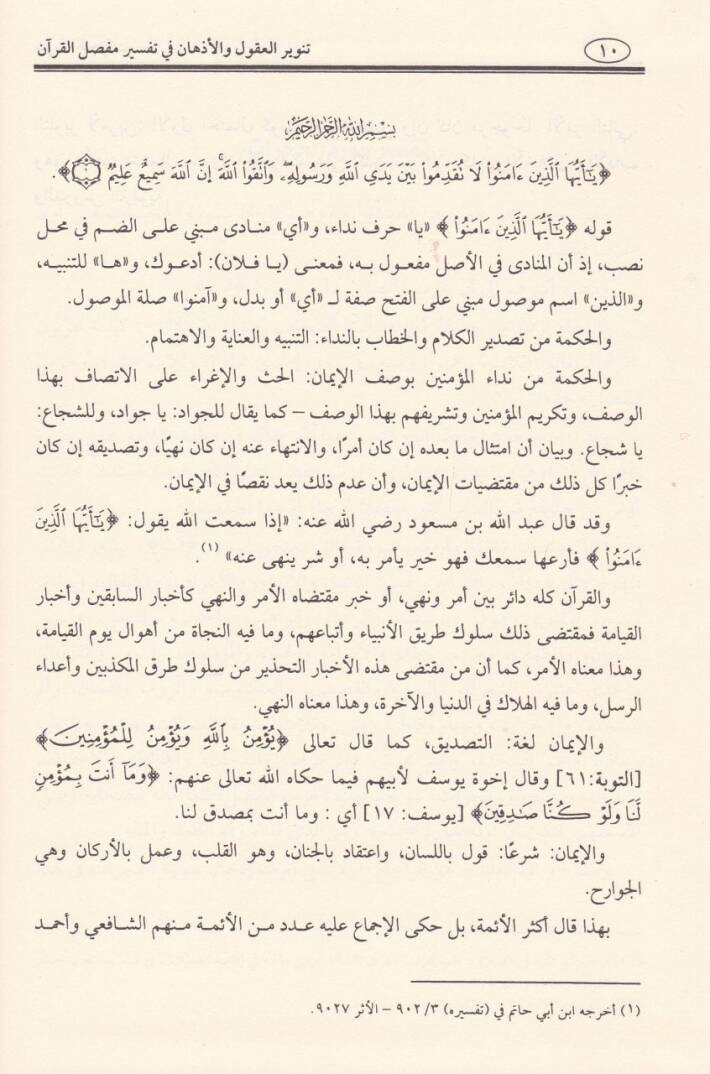 ١٠
تنوير العقول والأذهان في تفسير مفصل القرآن
بسم الله الرحمن الرحيم
﴿يَٰٓأَيُّهَا ٱلَّذِينَ ءَامَنُوا۟ لَا تُقَدِّمُوا۟ بَيْنَ يَدَىِ ٱللَّهِ وَرَسُولِهِۦ ۖ وَٱتَّقُوا۟ ٱللَّهَ ۚ إِنَّ ٱللَّهَ سَمِيعٌ عَلِيمٌ ۝١﴾.
قوله ﴿يَٰٓأَيُّهَا ٱلَّذِينَ ءَامَنُوا۟ ﴾ «يا» حرف نداء، و«أي» منادى مبني على الضم في محل
نصب، إذ أن المنادى في الأصل مفعول به، فمعنى (يا فلان): أدعوك، و«ها» للتنبيه،
و«الذين» اسم موصول مبني على الفتح صفة لـ «أي» أو بدل، و«آمنوا» صلة الموصول.
والحكمة من تصدير الكلام والخطاب بالنداء: التنبيه والعناية والاهتمام.
والحكمة من نداء المؤمنين بوصف الإيمان: الحث والإغراء على الاتصاف بهذا
الوصف، وتكريم المؤمنين وتشريفهم بهذا الوصف – كما يقال للجواد: يا جواد، وللشجاع:
يا شجاع. وبيان أن امتثال ما بعده إن كان أمرًا، والانتهاء عنه إن كان نهيًا، وتصديقه إن كان
خبرًا كل ذلك من مقتضيات الإيمان، وأن عدم ذلك يعد نقصًا في الإيمان.
وقد قال عبد الله بن مسعود رضي الله عنه: «إذا سمعت الله يقول: ﴿يَٰٓأَيُّهَا ٱلَّذِينَ
ءَامَنُوا۟ ﴾ فأرعها سمعك فهو خير يأمر به، أو شر ينهى عنه» (١).
والقرآن كله دائر بين أمر ونهي، أو خبر مقتضاه الأمر والنهي كأخبار السابقين وأخبار
القيامة فمقتضى ذلك سلوك طريق الأنبياء وأتباعهم، وما فيه النجاة من أهوال يوم القيامة،
وهذا معناه الأمر، كما أن من مقتضى هذه الأخبار التحذير من سلوك طرق المكذبين وأعداء
الرسل، وما فيه الهلاك في الدنيا والآخرة، وهذا معناه النهي.
والإيمان لغة: التصديق، كما قال تعالى ﴿يُؤْمِنُ بِٱللَّهِ وَيُؤْمِنُ لِلْمُؤْمِنِينَ﴾
[التوبة:٦١] وقال إخوة يوسف لأبيهم فيما حكاه الله تعالى عنهم: ﴿وَمَآ أَنتَ بِمُؤْمِنٍ
لَّنَا وَلَوْ كُنَّا صَٰدِقِينَ﴾ [يوسف: ١٧] أي : وما أنت بمصدق لنا.
والإيمان: شرعًا: قول باللسان، واعتقاد بالجنان، وهو القلب، وعمل بالأركان وهي
الجوارح.
بهذا قال أكثر الأئمة، بل حكى الإجماع عليه عدد من الأئمة منهم الشافعي وأحمد
(١) أخرجه ابن أبي حاتم في (تفسيره) ٩٠٢/٣ – الأثر ٩٠٢٧.